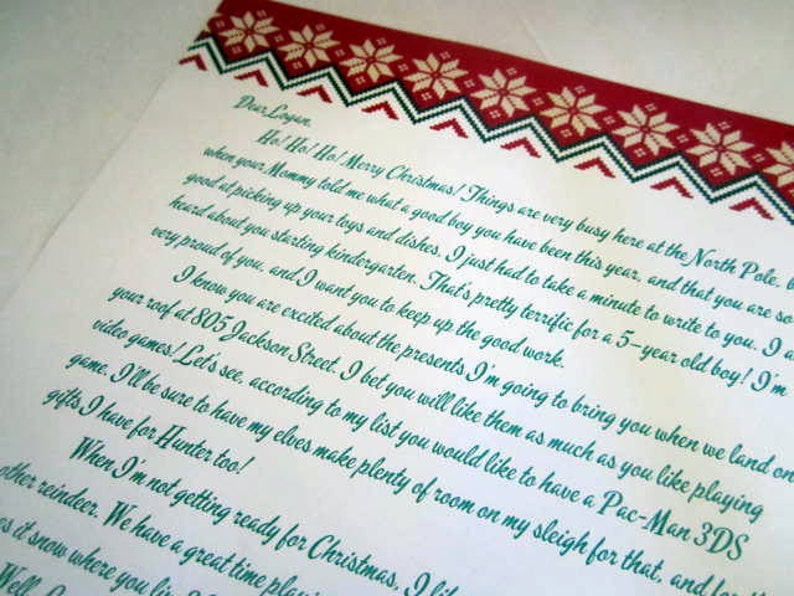 Dear Logan,
Ho! Ho! Ho! Merry Christmas! Things are very busy here at the North Pole, b
when your Mommy told me what a good boy you have been this year, and that you are so
good at picking up your toys and dishes, I just had to take a minute to write to you. I a
heard about you starting kindergarten. That's pretty terrific for a 5-year old boy! I'm
very proud of you, and I want you to keep up the good work.
I know you are excited about the presents I'm going to bring you when we land on
your roof at 805 Jackson Street. I bet you will like them as much as you like playing
video games! Let's see, according to my list you would like to have a Pac-Man 3DS
game. I'll be sure to have my elves make plenty of room on my sleigh for that, and for
gifts I have for Hunter too!
When I'm not getting ready for Christmas, I
other reindeer. We have a great time
it snow where you
Well,